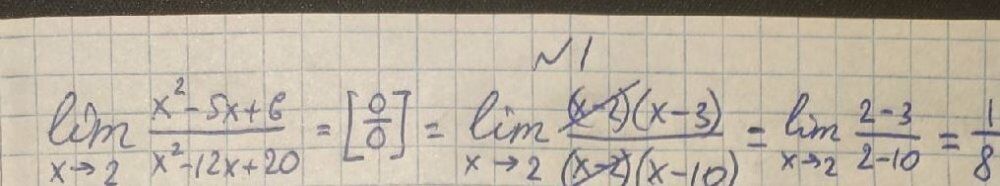 №1
lim x→2 (x²-5x+6)/(x²-12x+20) = [0/0] = lim x→2 ((x-2)(x-3))/((x-2)(x-10)) = lim x→2 (2-3)/(2-10) = 1/8